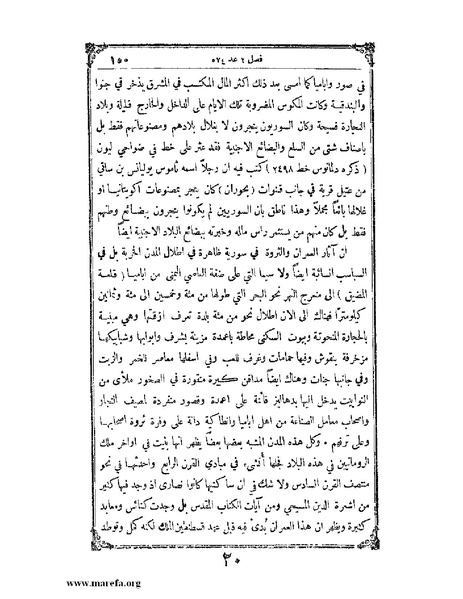 فصل ٢ عد ٥٢٤ ١٥٥
في صور واباميا كما امسى بعد ذلك اكثر المال المكتسب في المشرق يذخر في جنوا
والبندقية وكانت المكوس المضروبة تلك الايام على الداخل والخارج قليلة وبلاد
التجارة فسيحة وكان السوريون يتجرون لا بغلال بلادهم ومصنوعاتهم فقط بل
باصناف شتى من السلع والبضائع الاجنبية فقد عثر على خط في ضواحي ليون
(ذكره دلمانوس خط ٢٤٩٨) كتب فيه ان رجلًا اسمه ناموس يوليانس بن ساتي
من عقيل قرية في جانب قنوات (بحوران) كان يتجر بمصنوعات اكويتانيا او
غلالها بائعًا مجملًا وهذا ناطق بان السوريين لم يكونوا يتجرون ببضائع وطنهم
فقط بل كان منهم من يستثمر راس ماله وخبرته ببضائع البلاد الاجنبية ايضًا
ان آثار العمران والثروة في سورية ظاهرة في اطلال المدن الخربة بل في
السباسب انسائية ايضًا ولا سيما التي على ضفة العاصي اليمنى من اباميا (قلعة
المضيق) الى منعرج النهر نحو البحر التي طولها من مئة وخمسين الى مئة وثمانين
كيلومترًا فهناك الى الان اطلال نحو من مئة بلدة تعرف ازقتها وهي مبنية
بالحجارة المنحوتة وبيوت السكنى محاطة باعمدة مزينة بشرف وابوابها وشبابيكها
مزخرفة بنقوش وفيها حمامات وغرف للعب وفي اسفلها معاصر للخمر والزيت
وفي جانبها جنات وهناك ايضًا مدافن كبيرة منقورة في الصخور ملأى من
النواويس يدخل اليها بدهاليز قائمة على اعمدة وقصور منفردة لمصيف التجار
واصحاب معامل الصناعة من اهل اباميا وانطاكية دالة على وفرة ثروة اصحابها
وعلى ترفهم . وكل هذه المدن المشبه بعضها بعضًا يظهر انها بنيت في اواخر ملك
الرومانيين في هذه البلاد فجلها أُنشىء في مبادي القرن الرابع واحدثها في نحو
منتصف القرن السادس ولا شك في ان ساكنيها كانوا نصارى اذ وجد فيها كثير
من اشعرة الدين المسيحي ومن آيات الكتاب المقدس بل وجدت كنائس ومعابد
كثيرة ويظهر ان هذا العمران بُدىء فيه قبل عهد قسطنطين الملك لكنه كمل وتوطد
٢٠
www.marefa.org